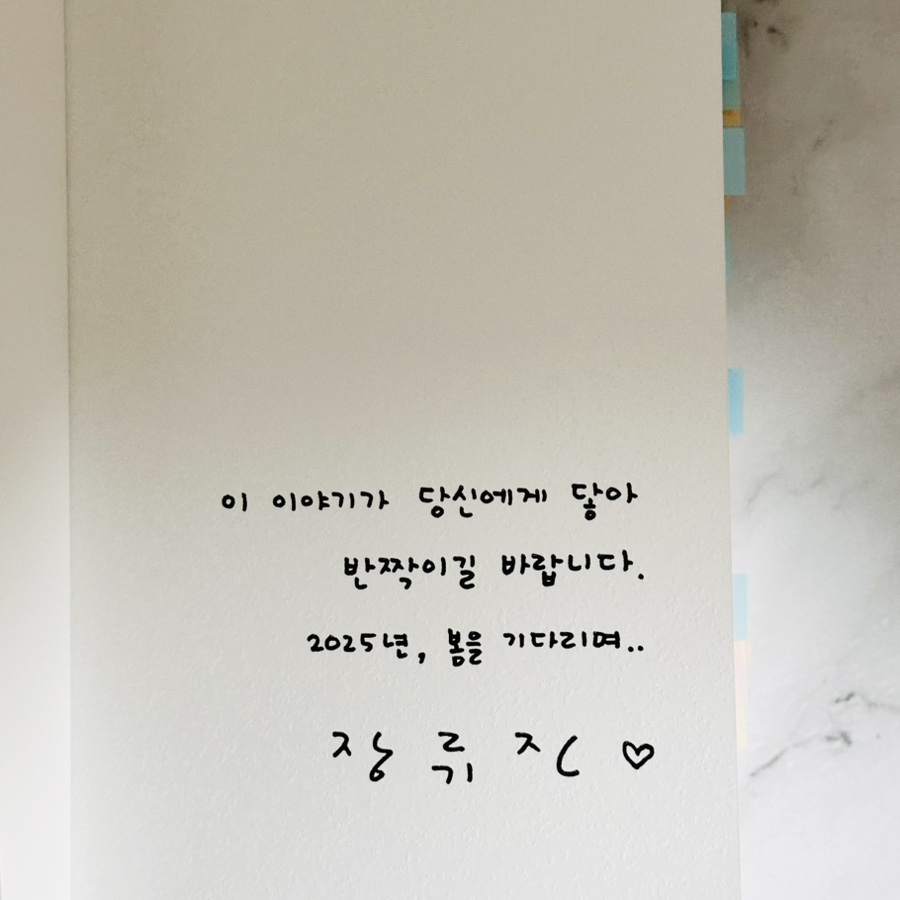 이 이야기가 당신에게 닿아
반짝이길 바랍니다.
2025년, 봄을 기다리며..
장류진♡